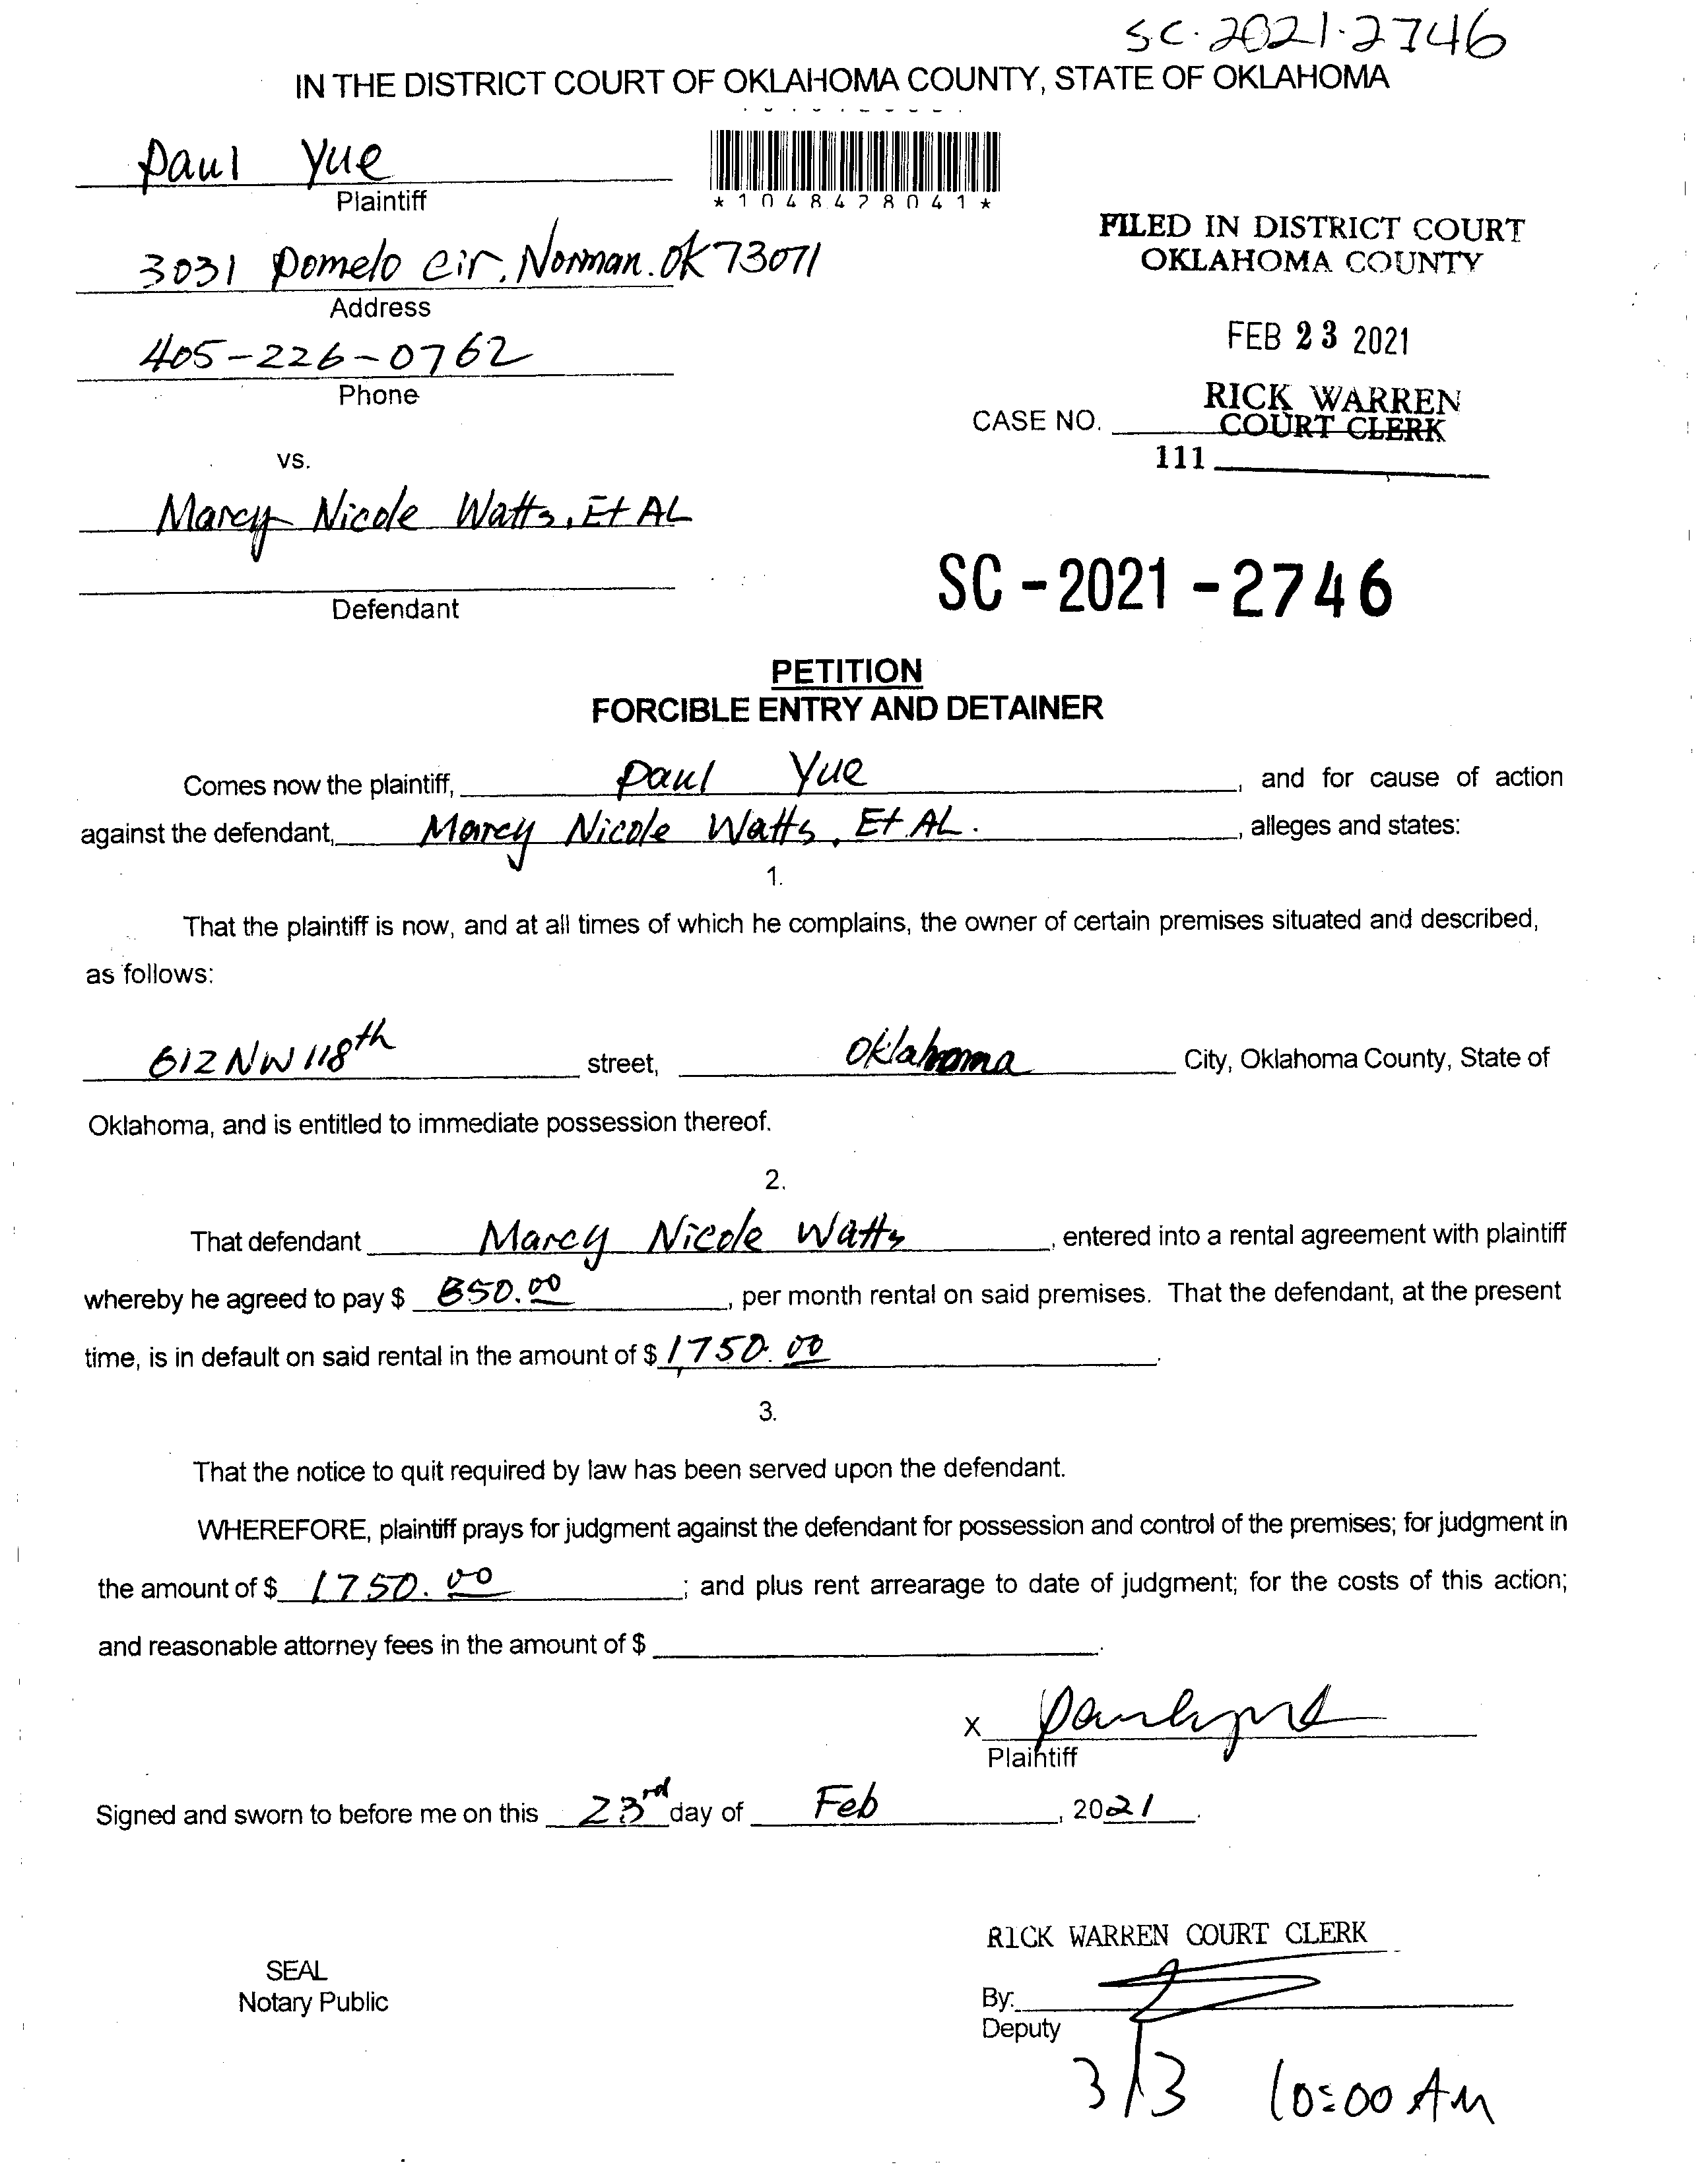 SC-2021-2746
IN THE DISTRICT COURT OF OKLAHOMA COUNTY, STATE OF OKLAHOMA
Paul Yue
Plaintiff
*1048428041*
FILED IN DISTRICT COURT
OKLAHOMA COUNTY
3031 Pomelo Cir, Norman. OK 73071
Address
FEB 23 2021
405-226-0762
Phone
RICK WARREN
CASE NO. COURT CLERK
111
vs.
Marcy Nicole Watts, Et AL
SC-2021-2746
Defendant
PETITION
FORCIBLE ENTRY AND DETAINER
Comes now the plaintiff, Paul Yue, and for cause of action
against the defendant, Marcy Nicole Watts, Et AL., alleges and states:
1.
That the plaintiff is now, and at all times of which he complains, the owner of certain premises situated and described,
as follows:
612 NW 118th street, Oklahoma City, Oklahoma County, State of
Oklahoma, and is entitled to immediate possession thereof.
2.
That defendant Marcy Nicole Watts, entered into a rental agreement with plaintiff
whereby he agreed to pay $ 850.00, per month rental on said premises. That the defendant, at the present
time, is in default on said rental in the amount of $ 1750.00.
3.
That the notice to quit required by law has been served upon the defendant.
WHEREFORE, plaintiff prays for judgment against the defendant for possession and control of the premises; for judgment in
the amount of $ 1750.00; and plus rent arrearage to date of judgment; for the costs of this action;
and reasonable attorney fees in the amount of $ .
X
Plaintiff
Signed and sworn to before me on this 23rd day of Feb, 2021.
RICK WARREN COURT CLERK
SEAL
Notary Public
By:
Deputy
3/3 10:00 AM